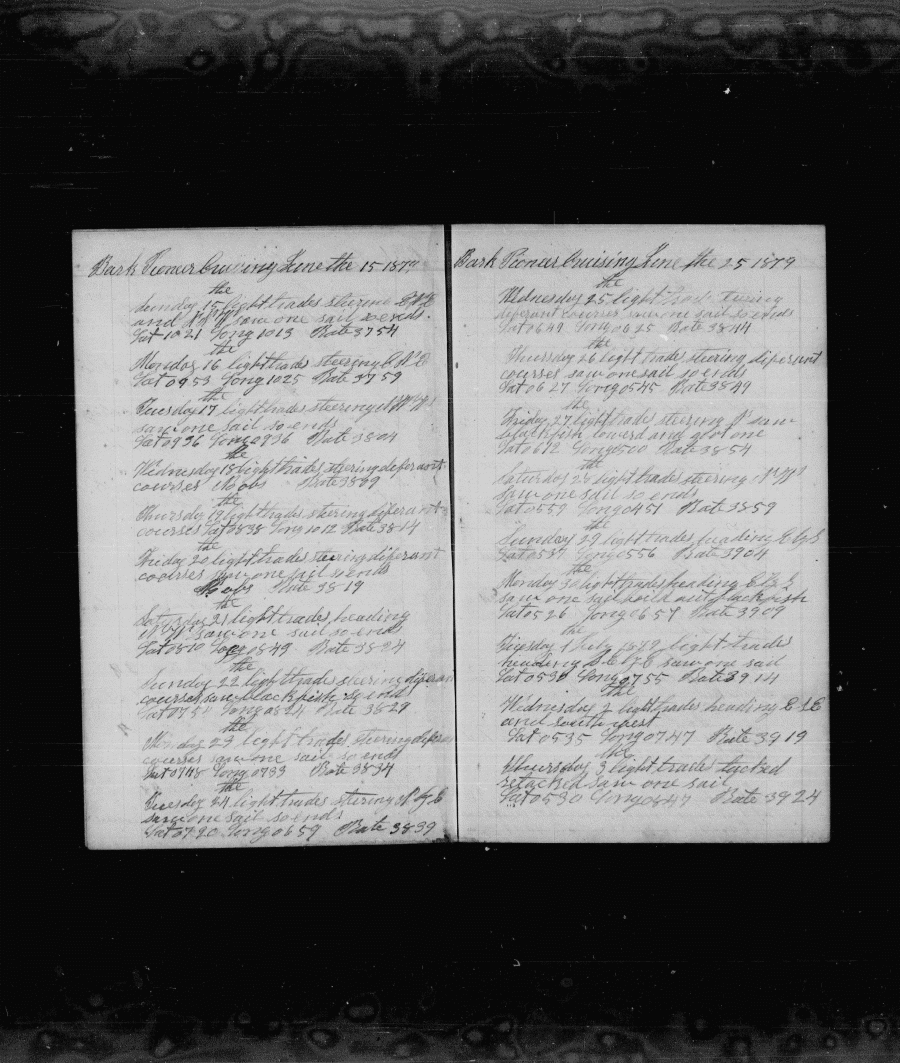 Bark Pioneer Cruising June the 15 1879
the
Sunday 15 light trades steering
and saw one sail so ends.
Lat 10 21 Long 10 13 Rate 37 54
the
Monday 16 light trades steering
Lat 09 53 Long 10 25 Rate 37 59
the
Tuesday 17 light trades steering
saw one sail so ends
Lat 09 36 Long 0936 Rate 3804
the
Wednesday 18 light trades steering diferant
courses No obs Rate 3809
the
Thursday 19 light trades steering diferant
courses Lat 0838 Long 10 12 Rate 38 14
the
Friday 20 light trades steering diferant
coorses saw one sail so ends
No obs Rate 38 19
the
Saturday 21 light trades heading
saw one sail so ends
Lat 0810 Long 0849 Rate 3824
the
Sunday 22 light trades steering
courses saw blackfish so end
Lat 0754 Long 0824 Rate 3829
the
Monday 23 light trades steering
courses saw one sail so ends
Lat 0748 Long 0733 Rate 3834
the
Tuesday 24 light trades steering N by E
saw one sail so ends
Lat 0720 Long 06 59 Rate 38 39
Bark Pioneer Cruising June the 25 1879
the
Wednesday 25 light trades steering
diferant courses saw one sail so ends
Lat 0649 Long 0625 Rate 3844
the
Thursday 26 light trades steering diferant
courses saw one sail so ends
Lat 06 27 Long 0545 Rate 3849
the
Friday 27 light trades steering saw
blackfish lowerd and got one
Lat 0612 Long 0500 Rate 38 54
the
Saturday 28 light trades steering
saw one sail so ends
Lat 0559 Long 0451 Rate 3859
the
Sunday 29 light trades heading E by S
Lat 0537 Long 0556 Rate 3904
the
Monday 30 light trades heading E by S
saw one sail blackfish
Lat 0526 Long 0657 Rate 3909
the
Tuesday 1 July 1879 light trades
heading saw one sail
Lat 0530 Long 0755 Rate 3914
the
Wednesday 2 light trades heading
and south west
Lat 0535 Long 0747 Rate 39 19
the
Thursday 3 light trades tacked
retacked saw one sail
Lat 0530 Long 0847 Rate 3924